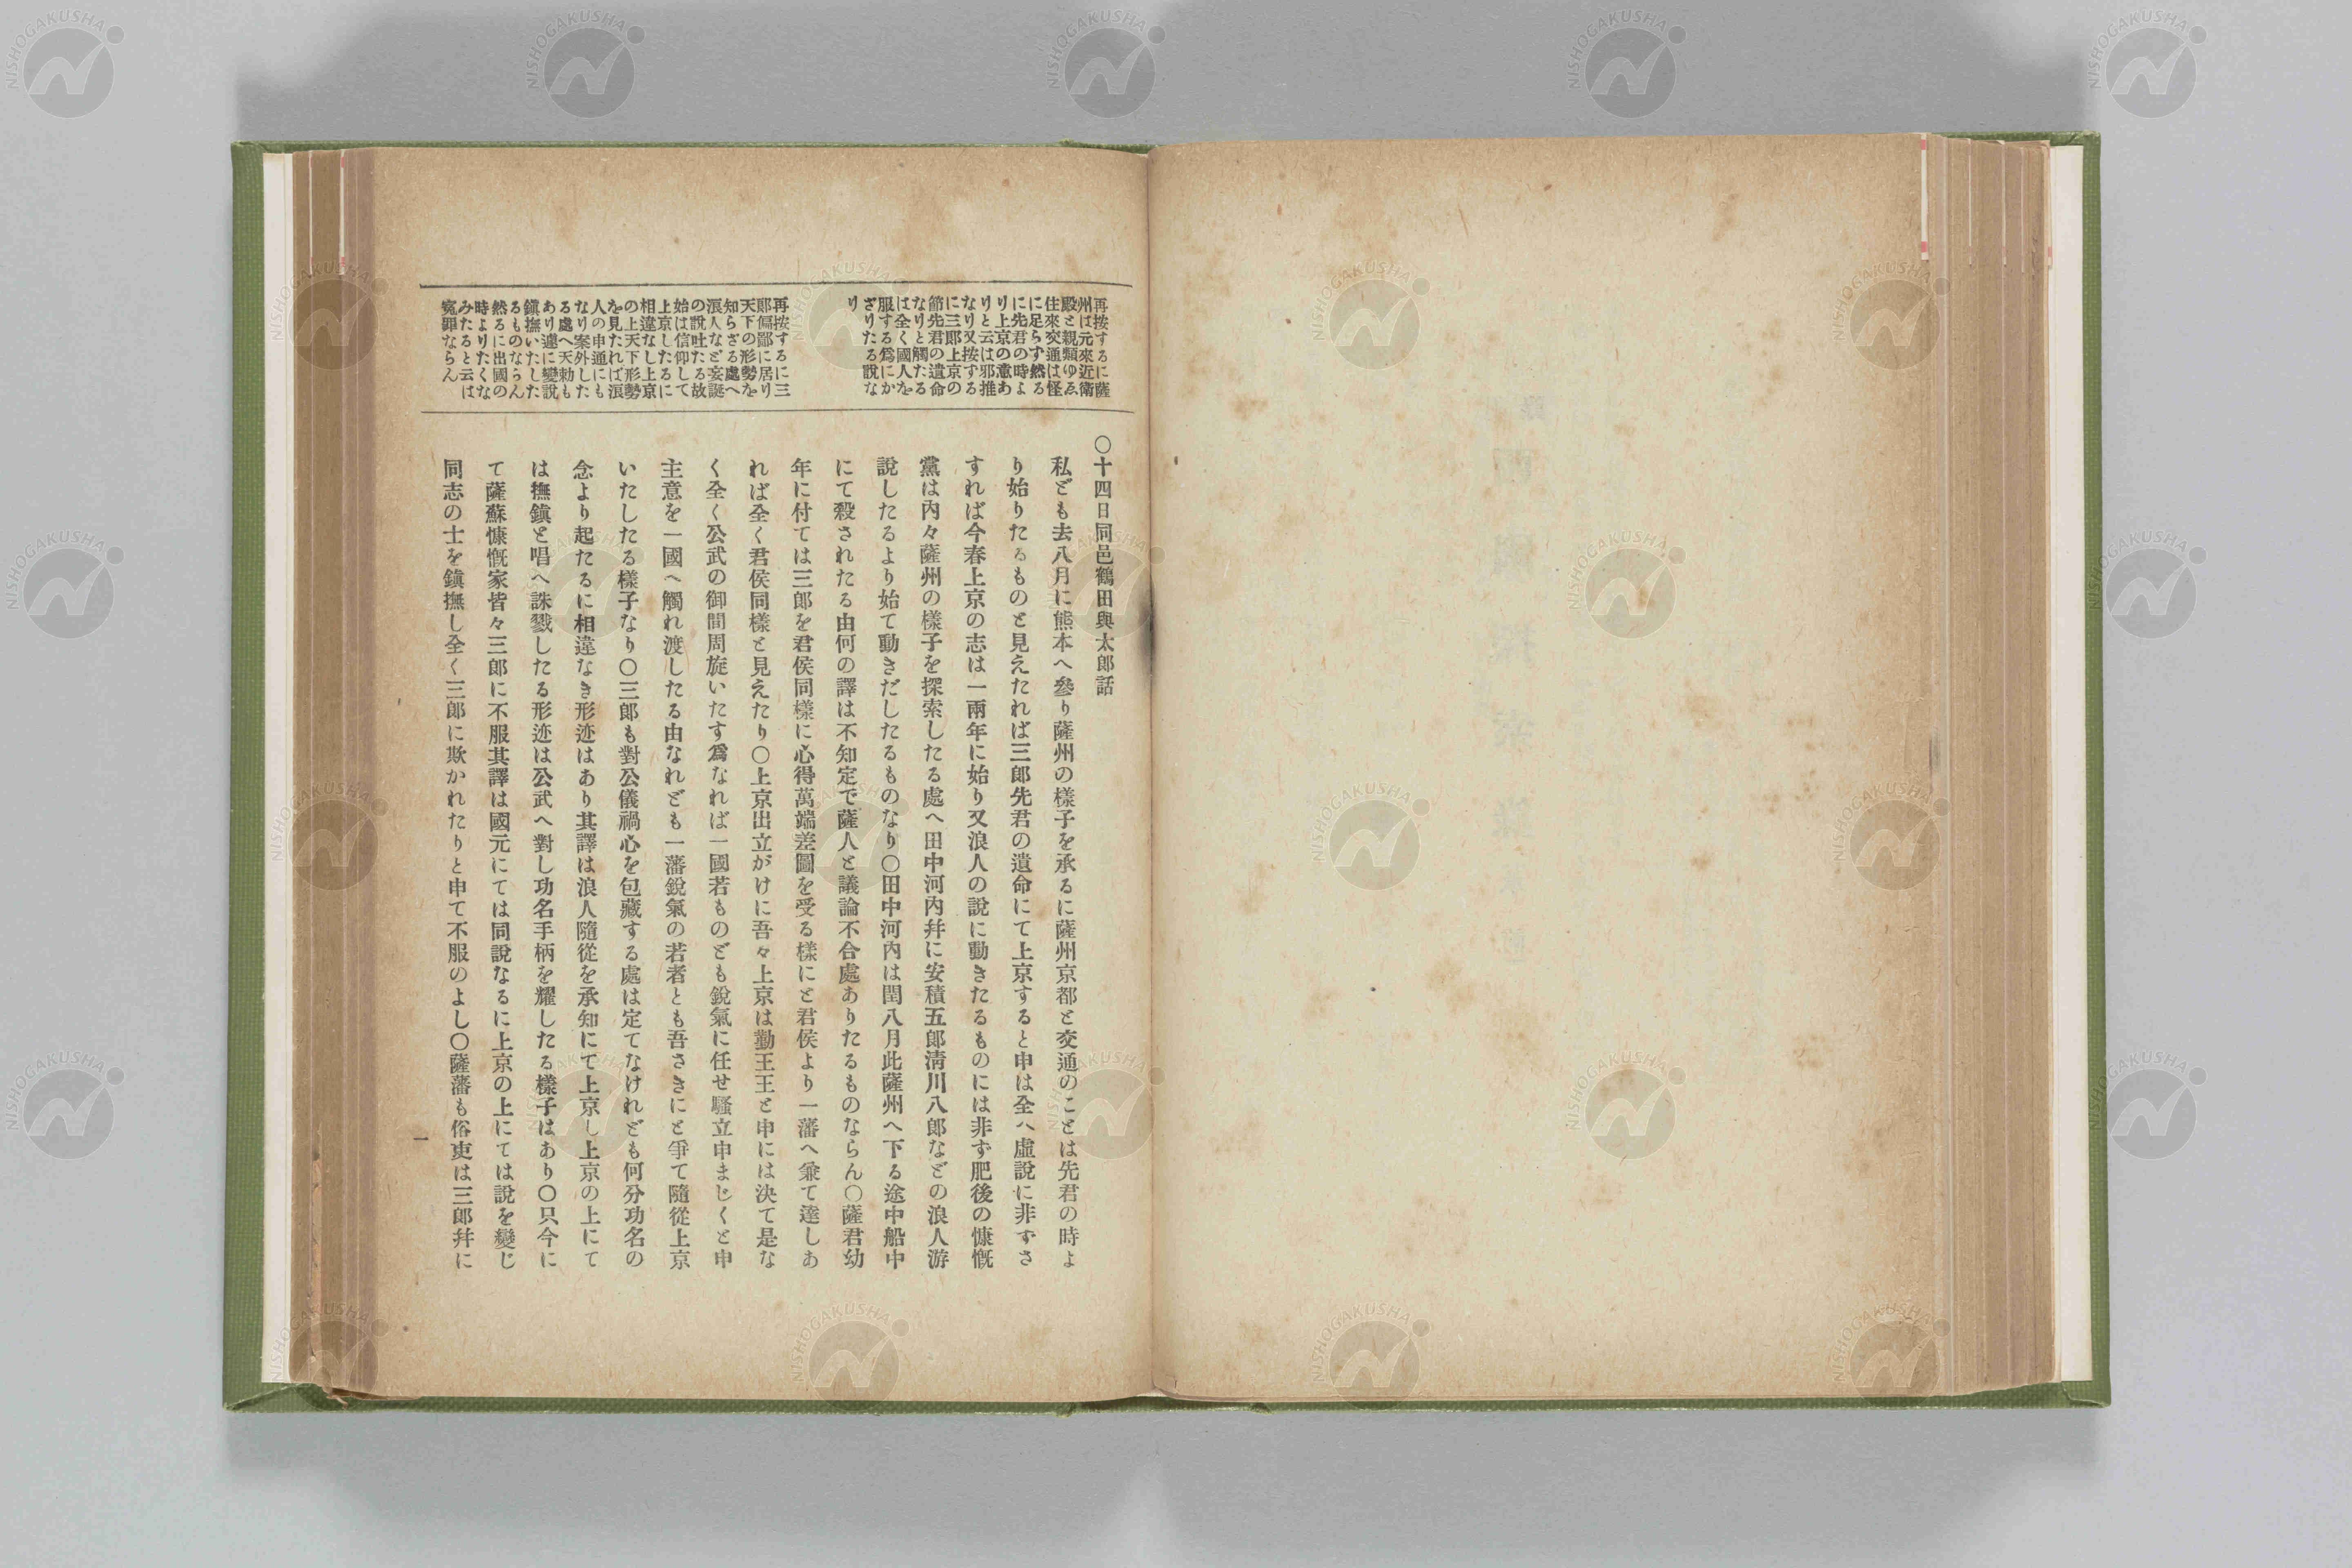 再按するに薩
州は元來近衛
殿と親類ゆゑ
住來交通は怪
に足らず然る
に先君の時よ
り上京の意あ
りと云は邪推
なり又按する
に三郎上京の
節先君の遺命
なりと觸たる
は全く國人を
服する爲にか
ざりたる說な
り
再按するに三
郎偏鄙に居り
天下の形勢を
知らざる處へ
浪人など妄誕
の說吐たる故
始は信仰して
上京したるに
相違なし上京
の上天下形勢
を見たれば浪
人の申通にも
なり案外した
る處へ天勅も
あり遽に變說
鎭撫いたした
るものならん
然るに出國の
時よりたくな
みたると云は
寃罪ならん
〇十四日同邑鶴田與太郎話
私ども去八月に熊本へ參り薩州の樣子を承るに薩州京都と交通のことは先君の時よ
り始りたるものと見えたれば三郎先君の遺命にて上京すると申は全ハ虛說に非ずさ
すれば今春上京の志は一兩年に始り又浪人の說に動きたるものには非ず肥後の慷慨
黨は內々薩州の樣子を探索したる處へ田中河內幷に安積五郎淸川八郎などの浪人游
說したるより始て動きだしたるものなり〇田中河內は閏八月此薩州へ下る途中船中
にて殺されたる由何の譯は不知定で薩人と議論不合處ありたるものならん〇薩君幼
年に付ては三郎を君侯同樣に心得萬端差圖を受る樣にと君侯より一藩へ兼て達しあ
れば全く君侯同樣と見えたり〇上京出立がけに吾々上京は勤王王と申には決て是な
く全く公武の御間周旋いたす爲なれば一國若ものども銳氣に任せ騷立申まじくと申
主意を一國へ觸れ渡したる由なれども一藩銳氣の若者とも吾さきにと爭て隨從上京
いたしたる樣子なり〇三郎も對公儀禍心を包藏する處は定てなけれども何分功名の
念より起たるに相違なき形迹はあり其譯は浪人隨從を承知にて上京し上京の上にて
は撫鎭と唱へ誅戮したる形迹は公武へ對し功名手柄を耀したる樣子はあり〇只今に
て薩蘇慷慨家皆々三郎に不服其譯は國元にては同說なるに上京の上にては說を變じ
同志の士を鎭撫し全く三郎に欺かれたりと申て不服のよし〇薩藩も俗吏は三郎幷に
一
NISHOGAKUSHA